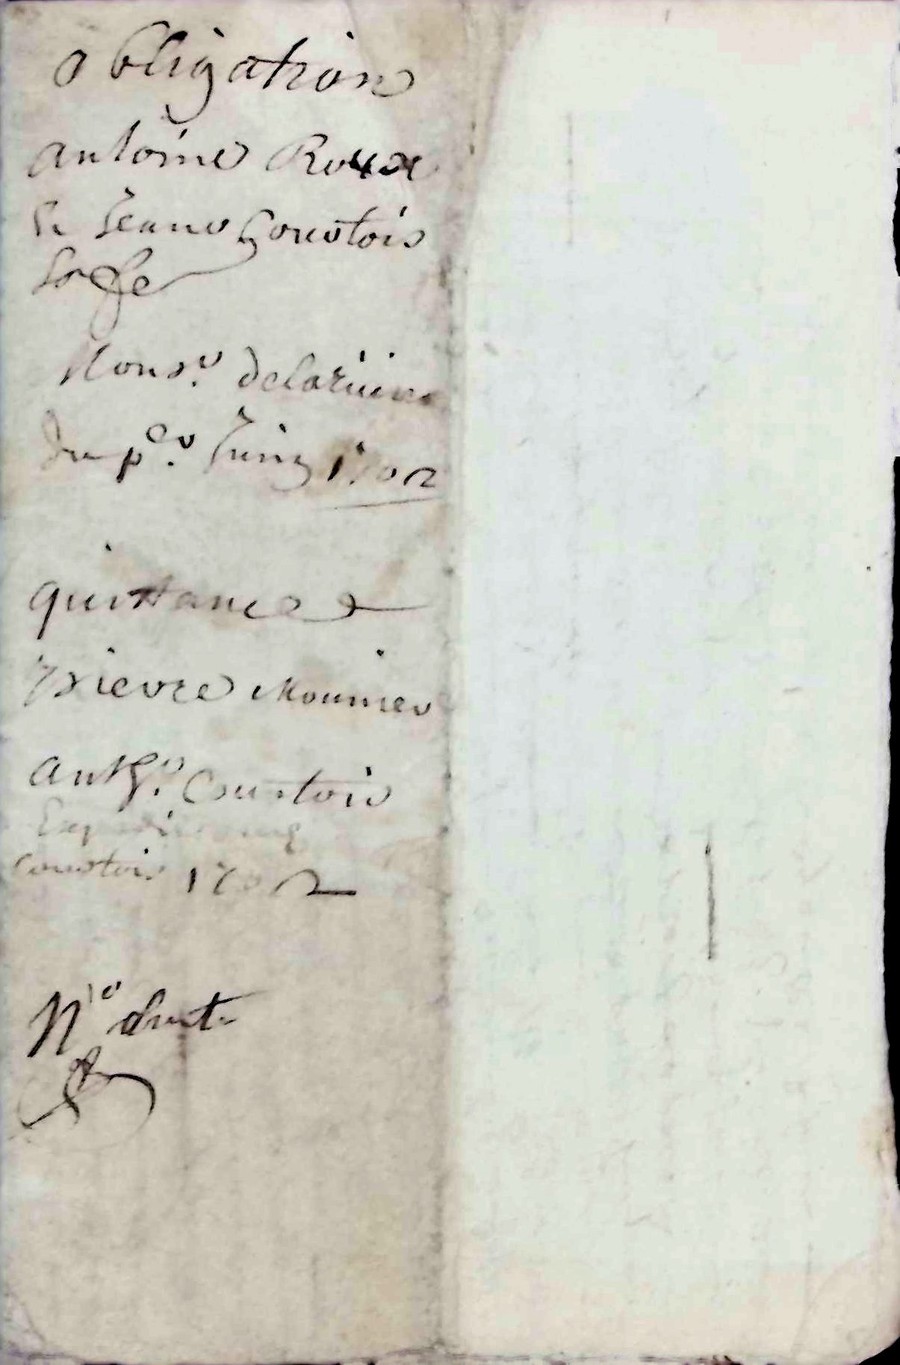 obligation
antoine Roux
Et Jeane Courtois
Sa fe
Monsr. delariviere
Du per. Juin 1702
quittance
pierre Mounier
anthe. Courtois
Courtois 1702
No